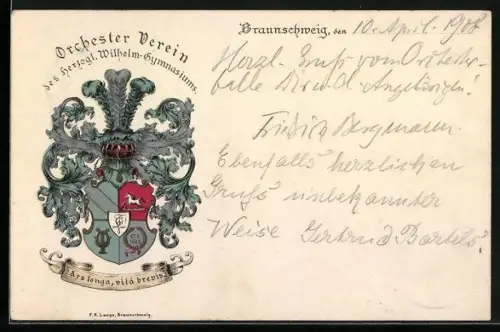 Orchester Verein
des Herzogl. Wilhelm-Gymnasiums.
Braunschweig, den 10. April. 1908
Herzl. Gruß vom Orchester-
balle Dir u. d. Angehörigen!
Friedrich Bergmann.
Ebenfalls herzlichen
Gruß unbekannter
Weise Gertrud Bartels.
Ars longa, vita brevis
F. K. Lange, Braunschweig.